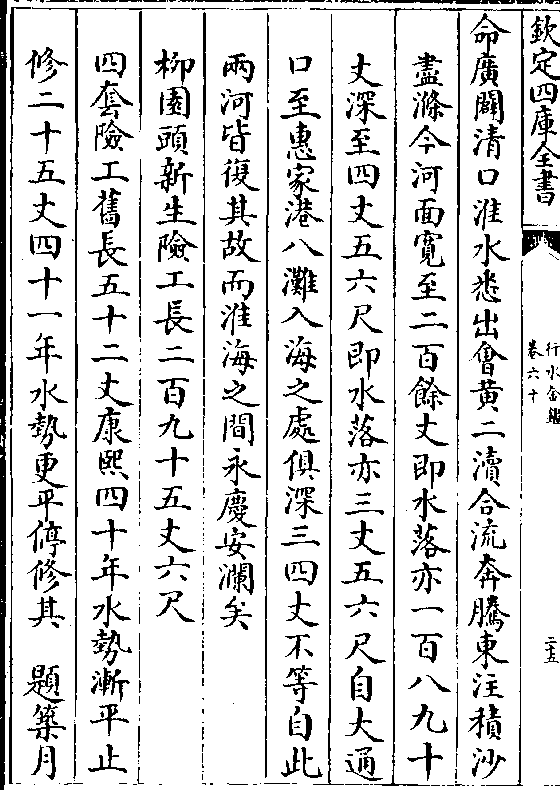 欽定四庫全書
行水金鑑
卷六十
二五
命廣闢清口淮水悉出會黄二瀆合流奔騰東注積沙
盡滌今河面寬至二百餘丈即水落亦一百八九十
丈深至四丈五六尺即水落亦三丈五六尺自大通
口至惠家港八灘入海之處俱深三四丈不等自此
兩河皆復其故而淮海之間永慶安瀾矣
柳園頭新生險工長二百九十五丈六尺
四套險工舊長五十二丈康熙四十年水勢漸平止
修二十五丈四十一年水勢更平停修其　題築月